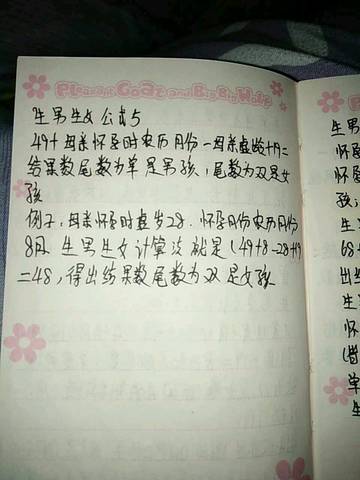 Pleasant Goat and Big Big Wolf
生男生女公式5
49+母亲怀孕时农历月份一母亲虚龄+19=
结果数尾数为单是男孩，尾数为双是女
孩
例子，母亲怀孕时虚岁28.怀孕月份农历月份
8月.生男生女计算法就是(49+8-28+19
=48，得出结果数尾数为双是女孩
生男
怀孕
怀孕
孩，
生
68+
出结
生
怀
(
单
生